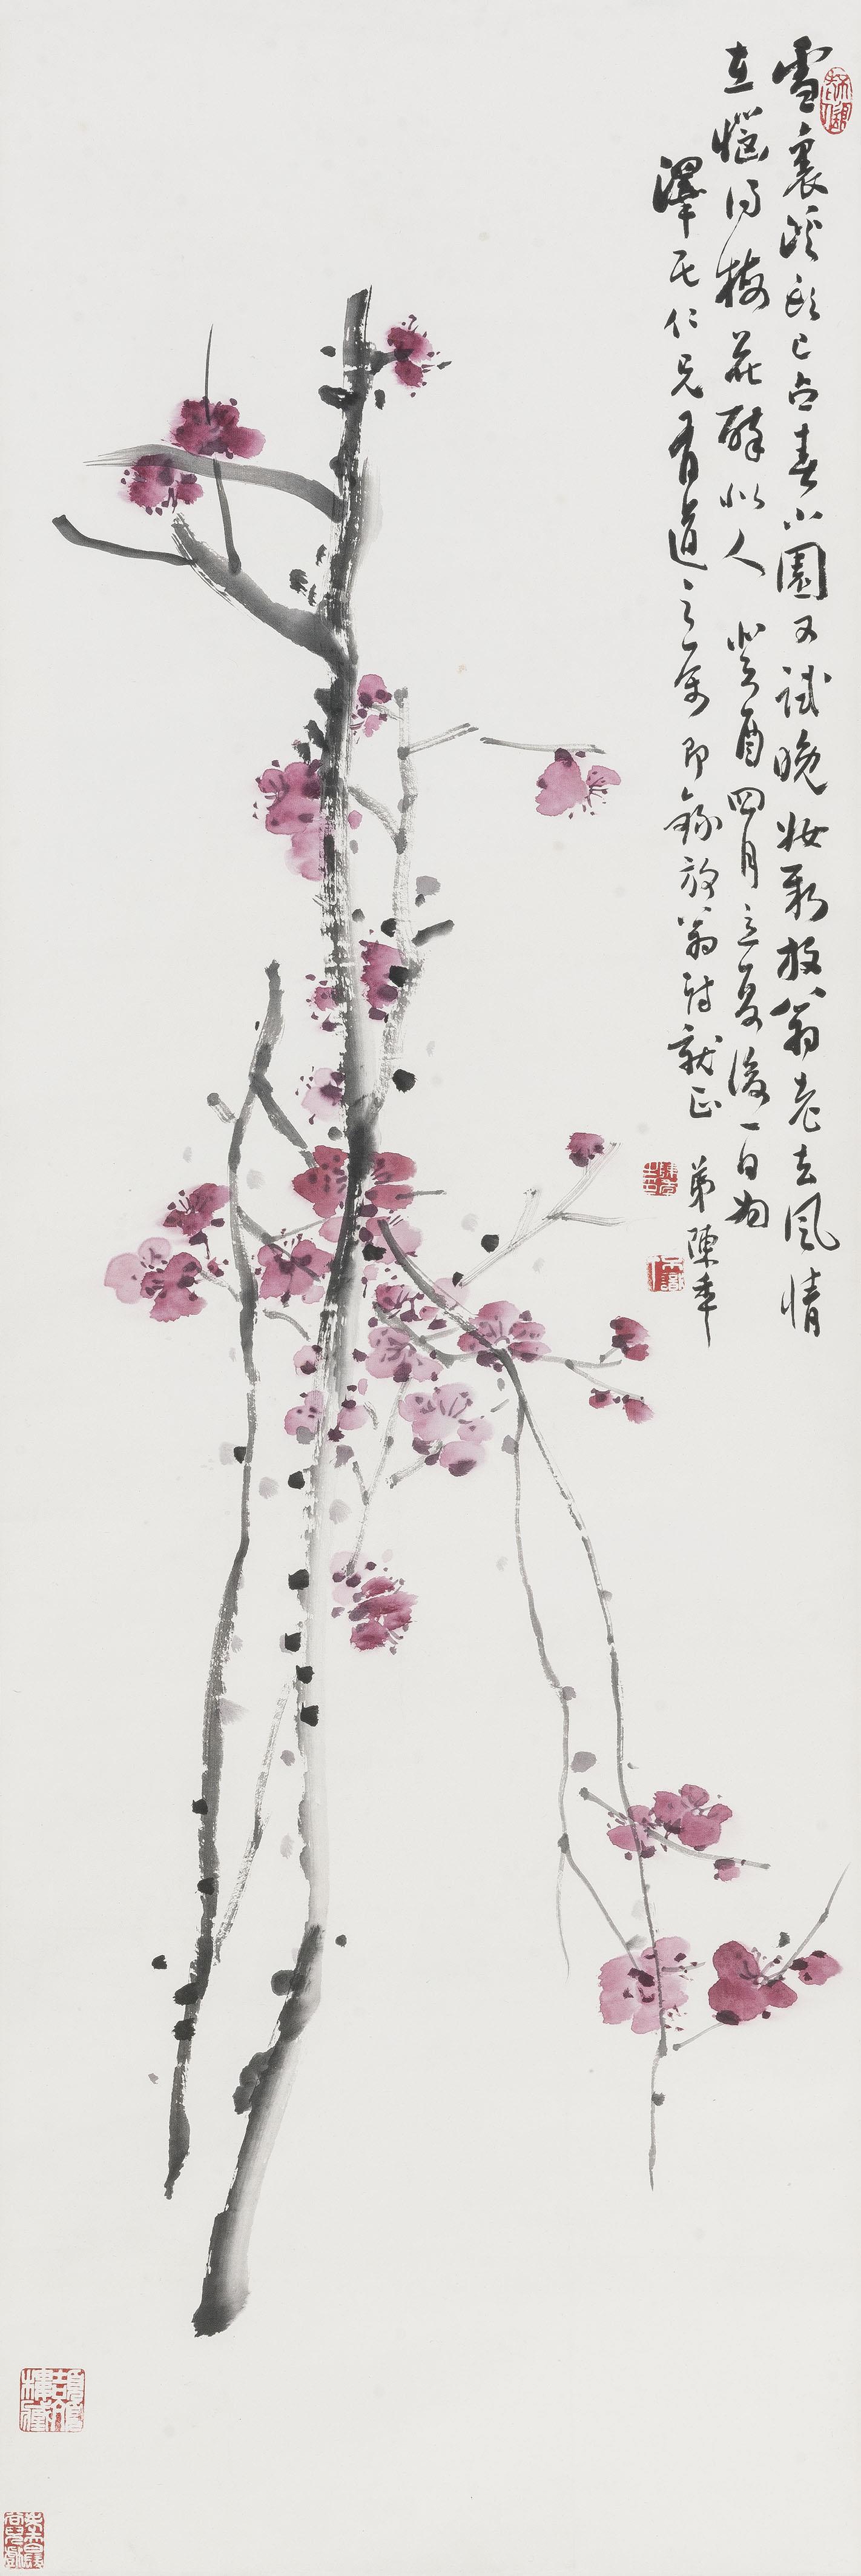 雪裏溪頭已占春小園又試晚妝新放翁老去風情
在惱得梅花醉似人 癸酉四月立夏後一日為
澤民仁兄有道之屬即錄放翁詩就正 弟陳年